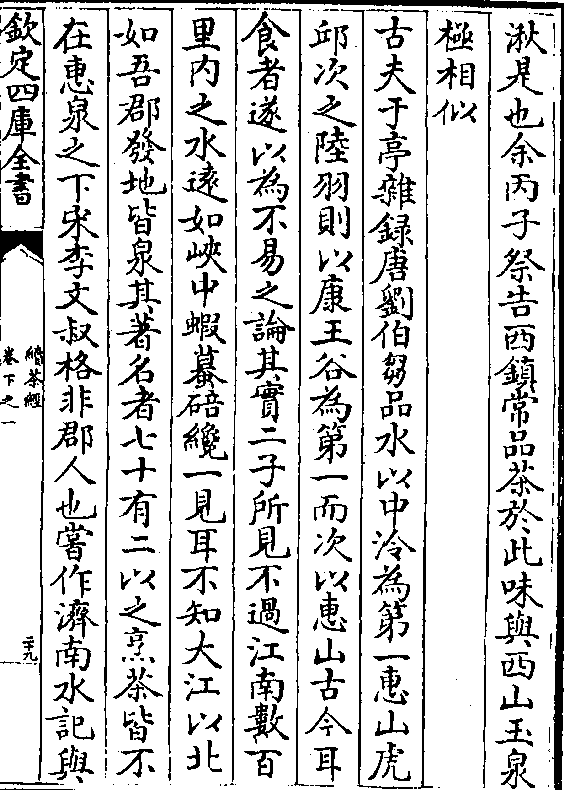 湫是也余丙子祭告西鎮常品茶於此味與西山玉泉
極相似
古夫于亭雜録唐劉伯芻品水以中泠為第一惠山虎
邱次之陸羽則以康王谷為第一而次以惠山古今耳
食者遂以為不易之論其實二子所見不過江南數百
里内之水逺如峽中蝦蟇碚纔一見耳不知大江以北
如吾郡發地皆泉其著名者七十有二以之烹茶皆不
在惠泉之下宋李文叔格非郡人也嘗作濟南水記與
欽定四庫全書
續茶經
卷下之一
二十九